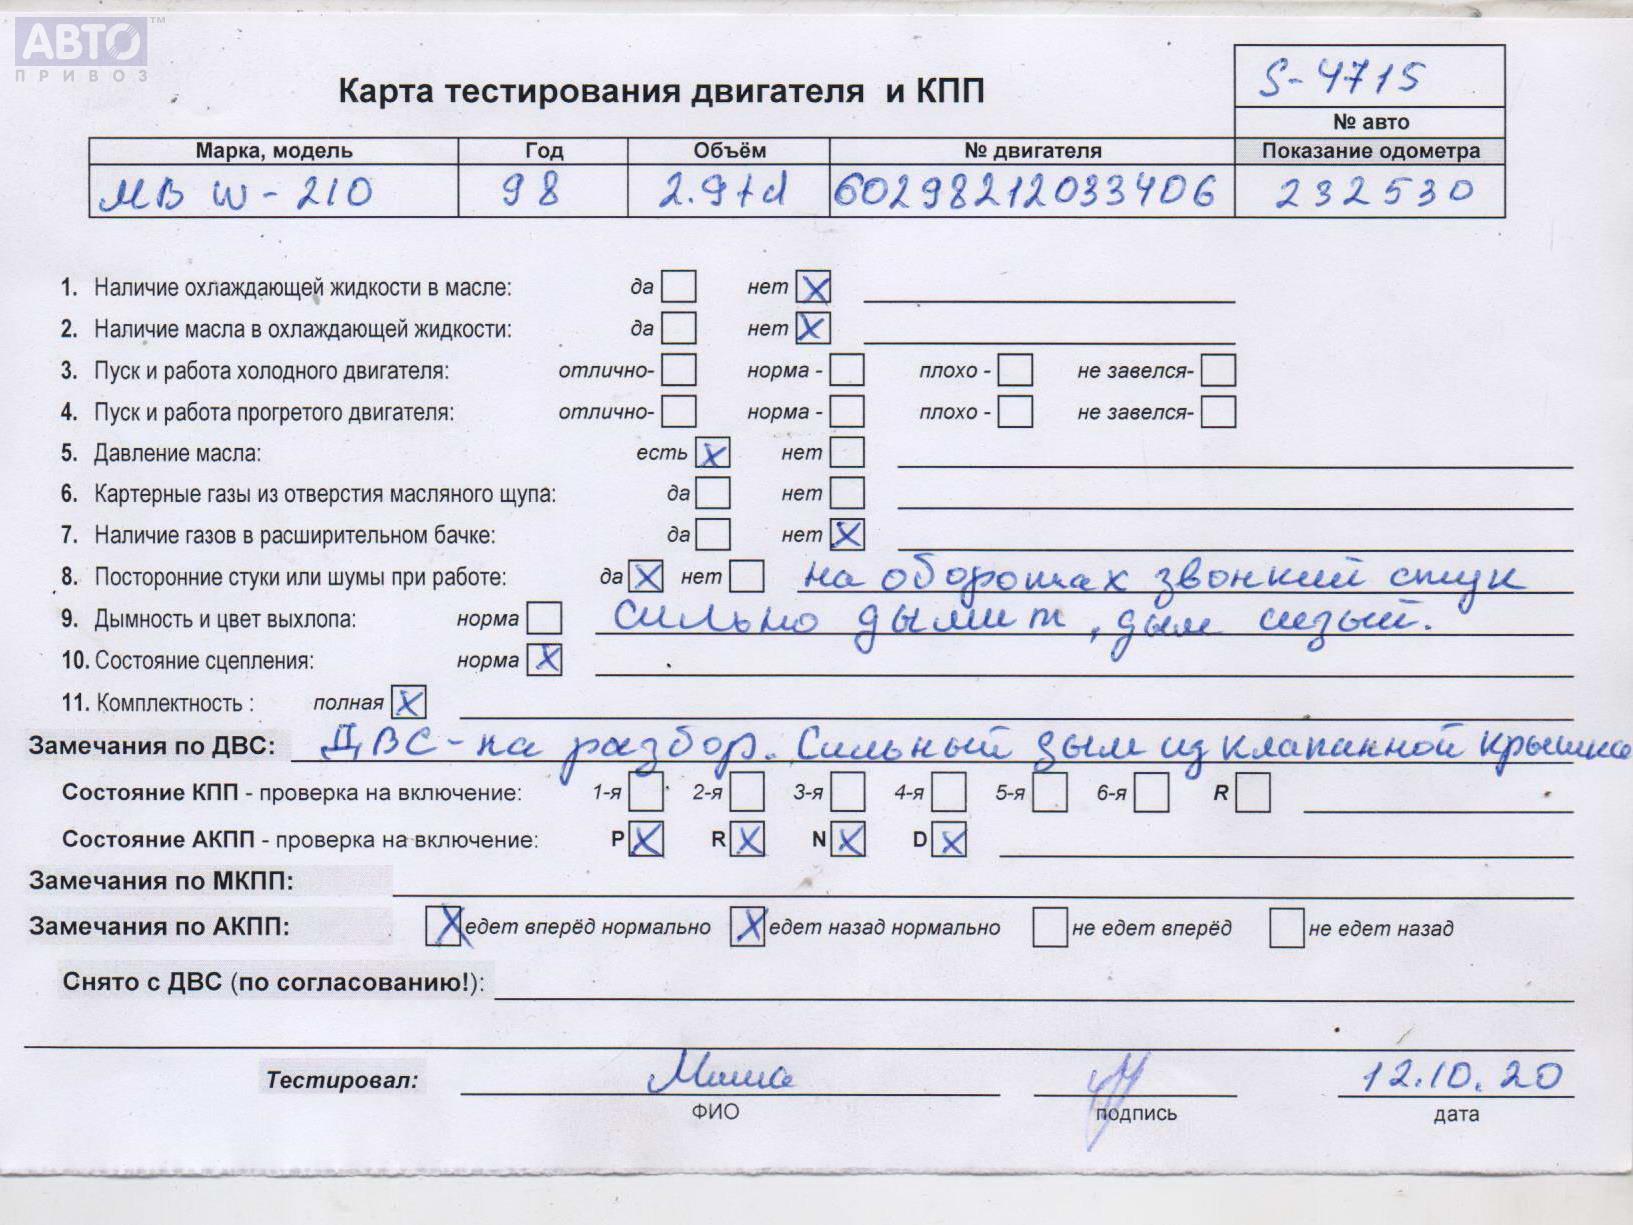 АВТО™
ПРИВОЗ
S-4715
Карта тестирования двигателя и КПП
№ авто
Марка, модель Год Объём № двигателя Показание одометра
МВ W-210 98 2.9td 60298212033406 232530
1. Наличие охлаждающей жидкости в масле: да нет X
2. Наличие масла в охлаждающей жидкости: да нет X
3. Пуск и работа холодного двигателя: отлично- норма - плохо - не завелся-
4. Пуск и работа прогретого двигателя: отлично- норма - плохо - не завелся-
5. Давление масла: есть X нет
6. Картерные газы из отверстия масляного щупа: да нет
7. Наличие газов в расширительном бачке: да нет X
8. Посторонние стуки или шумы при работе: да X нет на оборотах звонкий стук
9. Дымность и цвет выхлопа: норма сильно дымит, дым сизый.
10. Состояние сцепления: норма X
11. Комплектность : полная X
Замечания по ДВС: ДВС-на разбор. Сильный дым из клапанной крышки
Состояние КПП - проверка на включение: 1-я 2-я 3-я 4-я 5-я 6-я R
Состояние АКПП - проверка на включение: P X R X N X D X
Замечания по МКПП:
Замечания по АКПП: X едет вперёд нормально X едет назад нормально не едет вперёд не едет назад
Снято с ДВС (по согласованию!):
Тестировал: Миша 12.10.20
ФИО подпись дата